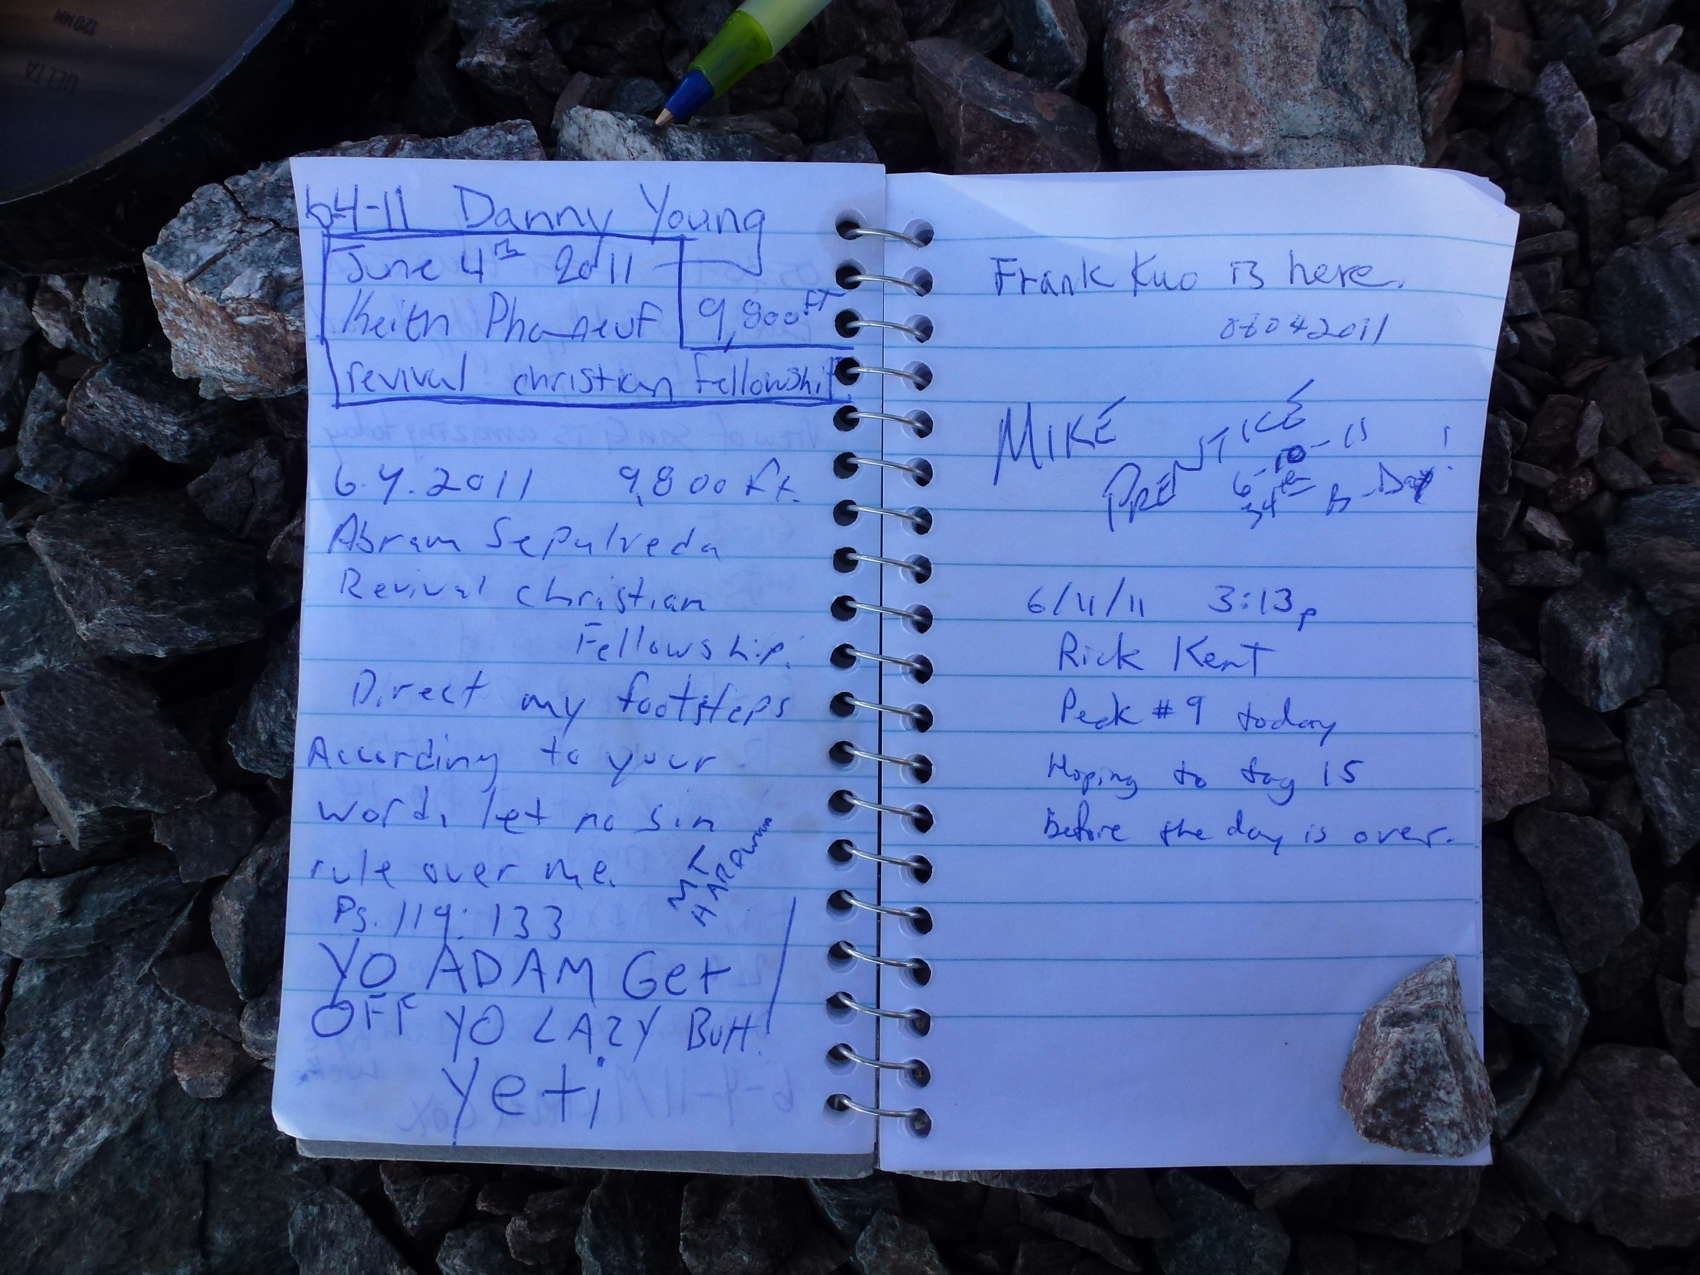 6-4-11 Danny Young
June 4th 2011
Keith Phaneuf 9,800 FT
revival christian Fellowship
6.4.2011 9,800 ft.
Abram Sepulveda
Revival christian
Fellowship.
Direct my footsteps
According to your
word, let no sin
rule over me.
Ps. 119:133
MT
HARDWWW
YO ADAM Get
OFF YO LAZY Butt!
yeti
Frank Kuo is here.
06042011
MIKE
PRENTICE
6-10-11
34 B-Day!
6/11/11 3:13p
Rick Kent
Peak #9 today
Hoping to tag 15
Before the day is over.